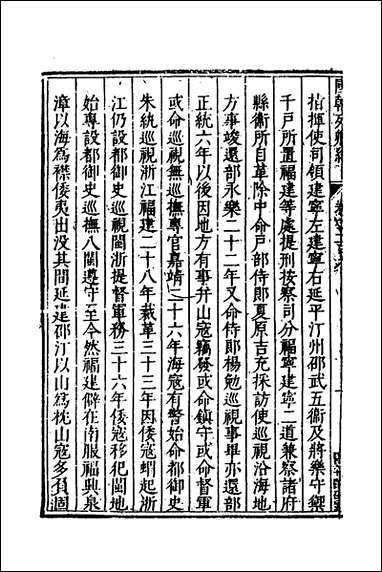 指揮使司領建寧左建寧右延平汀州邵武五衞及將樂守禦
千戶所置福建等處提刑按察司分福寧建寧二道兼察諸府
縣衞所自革除中命戶部侍郎夏原吉充採訪使巡視沿海地
方事竣還部永樂二十二年又命侍郎楊勉巡視事畢亦還部
正統六年以後因地方有事并山寇竊發或命鎮守或命督軍
或命巡視無巡撫專官嘉靖二十六年海寇有警始命都御史
朱紈巡視浙江福建二十八年裁革三十三年因倭寇蝟起浙
江仍設都御史巡視閩浙提督軍務三十六年倭寇移犯閩地
始專設都御史巡撫八閩遵守至今然福建僻在南服福興泉
漳以海為襟倭夷出没其間延建邵汀以山為枕山寇多負固